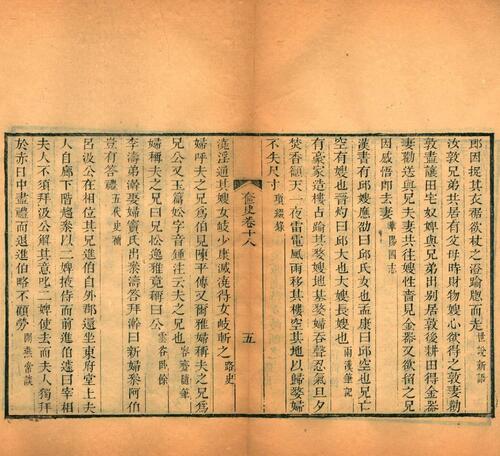 郎因捉其衣裾欲杖之澄踰牕而走世說新語
汝敦兄弟共居有父母時財物嫂心欲得之敦妻勸
敦盡讓田宅奴婢與兄弟出别居敦後耕田得金器
妻勸送與兄夫妻共往嫂性嗇見金器又欲留之兄
因感悟即去妻華陽國志
漢書有邱嫂應劭曰邱氏女也孟康曰邱空也兄亡
空有嫂也晉灼曰邱大也大嫂長嫂也兩漢筆記
有豪家造樓占踰其嫠嫂地基嫠婦吞聲忍氣旦夕
焚香顲天一夜雷電風雨移其樓空其地以歸嫠婦
不失尺寸
奩史卷十八
五
澆淫通其嫂女岐少康滅澆得女岐斬之路史
婦呼夫之兄爲伯見陳平傳又爾雅婦稱夫之兄爲
兄公又玉篇妐字音鍾注云夫之兄也容齋隨筆
婦稱夫之兄曰兄忪逸雅竟稱曰公雲谷臥餘
李濤弟澣娶婦竇氏出叅濤答拜澣曰新婦叅阿伯
豈有答禮五代史補
呂汲公在相位其兄進伯自外郡還坐東府堂上夫
人自廊下趨叅以二婢掖侍而前進伯遽曰宰相
夫人不須拜汲公解其意叱二婢使去而夫人獨拜
於赤日中盡禮而退進伯略不顧勞閒燕常談